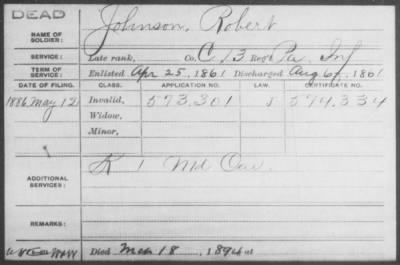 DEAD
NAME OF SOLDIER: Johnson, Robert
SERVICE: Late rank, Co. C, 13 Reg't Pa. Inf
TERM OF SERVICE: Enlisted Apr 25, 1861 Discharged Aug 6, 1861
DATE OF FILING. CLASS. APPLICATION NO. LAW. CERTIFICATE NO.
1886 May 12 Invalid, 573.301 J 574.334
Widow,
Minor,
ADDITIONAL SERVICES: K 1 Md Cav.
REMARKS:
Died Mch 18, 1894 at